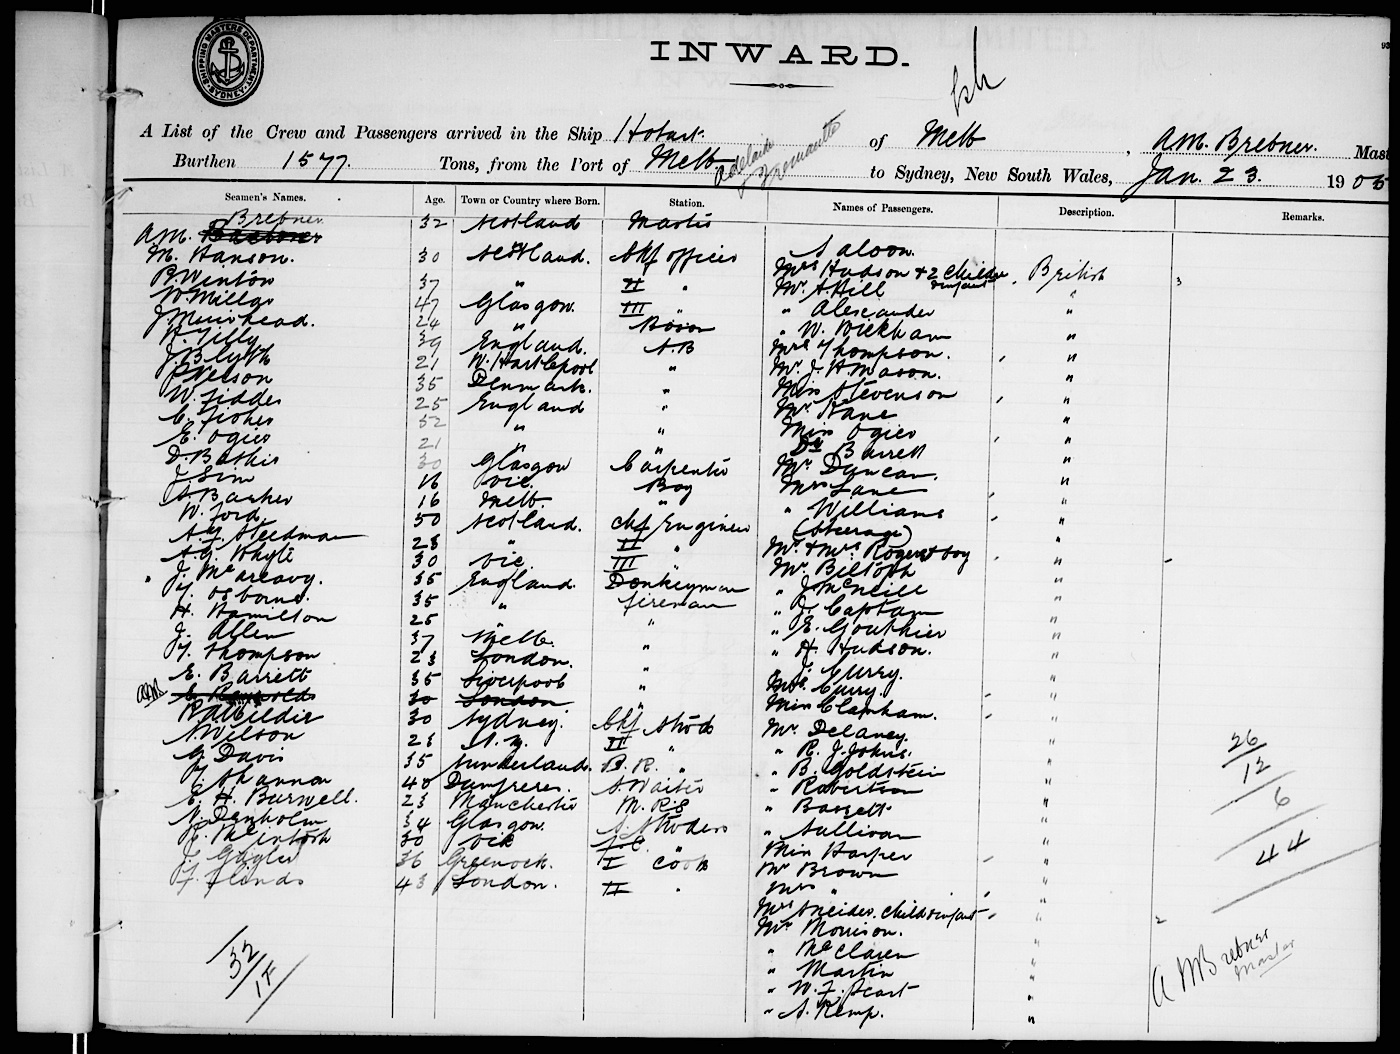 SHIPPING MASTERS DEPARTMENT SYDNEY
INWARD.
A List of the Crew and Passengers arrived in the Ship Hobart. of Melb, A M. Brebner. Mast
Burthen 1577. Tons, from the Port of Melb Adelaide Fremantle to Sydney, New South Wales, Jan. 23. 1905
Seamen's Names. Age. Town or Country where Born. Station. Names of Passengers. Description. Remarks.
Brebner
AM. 32 Scotland Master
M. Hanson. 30 Scotland. Chf officer Saloon.
B Winton 37 " II " Mrs Hudson + 2 Childn & infant British 3
W Millar 47 Glasgow. III " Mr. A. Hill "
J Muirhead. 24 " Boson " Alexander "
39 England. A.B " W. Wickham "
J Blyth 21 W. Hartlepool " Mrs Thompson. "
35 Denmark. " Mr. J. H Mason. "
W. 25 England " Miss Stevenson "
C. Fisher 52 " " Mr. Kane "
E. Ogier 21 " " Miss Ogier "
D. 30 Glasgow Carpenter Dr Barrett "
J Sim 16 Vic. Boy Mr. Duncan. "
Barker 16 Melb. " Mrs Lane "
W. Ford 50 Scotland. Chf Engineer " Williams "
A. J. Steedman 28 " II " (Steerage)
A. G. Whyte 30 Vic. III " Mr. & Mrs Rogers & boy "
J. McAreavy. 35 England. Donkeyman Mr. "
Osborne. 35 " fireman " J. McNeill "
H. Hamilton 25 " " " J. "
J. Allen 37 Melb. " " E. "
Thompson 28 London. " " H. Hudson. "
E. Barrett 35 Liverpool " " J. Curry. "
AMB 30 London " Mrs. Curry. "
30 Sydney. Chf Stwd Miss Clanham. "
Wilson 28 N. Z. II " Mr. Delaney. "
G Davis 35 Sunderland. B. R. " " R. J. Johns. "
Shannon 40 Dumfreres. S. Waiter " B. Goldstein "
E. H. Burwell. 23 Manchester M. R S " Robertson "
Denholm 34 Glasgow. S. Stwdess " Barrett "
McIntosh 30 Vic " Sullivan "
J. 36 Greenock. I Cook Miss Harper "
43 London. II " Mr Brown "
Mrs " "
Mrs Sneider. child & infant " 2
Mr Morrison. "
" McClaren "
" Martin "
" W. J. "
" A. Kemp. "
26
12
6
44
32
A M Brebner
Master